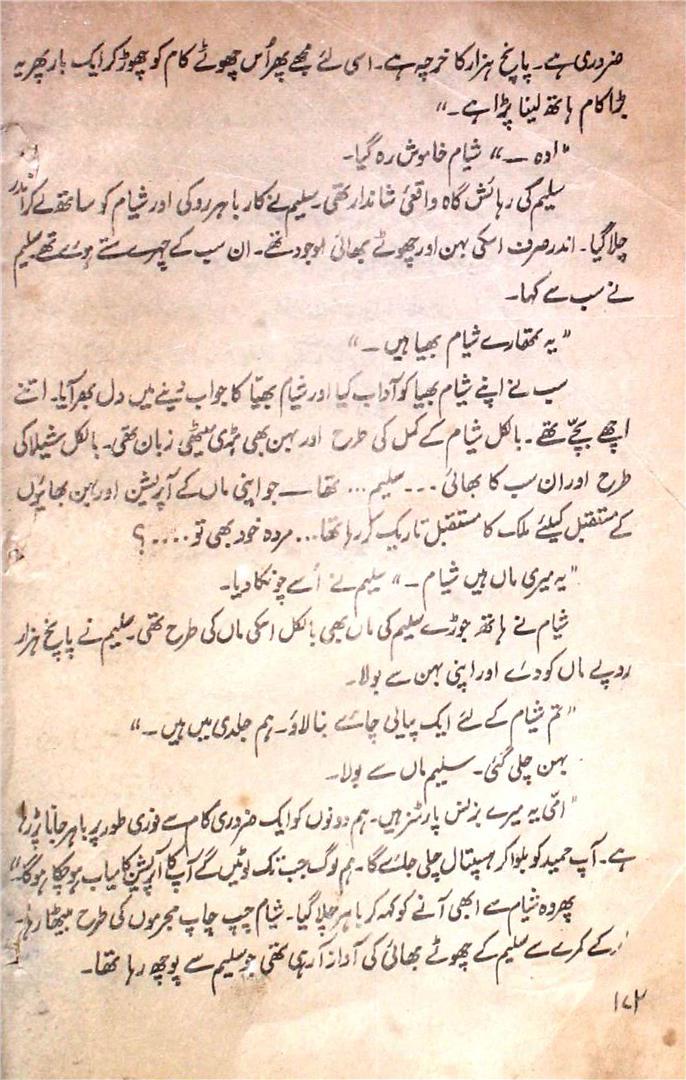 ضروری ہے۔ پانچ ہزار کا خرچہ ہے۔ اسی لئے مجھے پھر اُس چھوٹے کام کو چھوڑ کر ایک بار پھر یہ
بڑا کام ہاتھ لینا پڑا ہے۔“
”اوہ —“ شیام خاموش رہ گیا۔
سلیم کی رہائش گاہ واقعی شاندار تھی۔ سلیم نے کار باہر روکی اور شیام کو ساتھ لے کر اندر
چلا گیا۔ اندر صرف اسکی بہن اور چھوٹے بھائی موجود تھے۔ ان سب کے چہرے ستے ہوئے تھے سلیم
نے سب سے کہا۔
”یہ تمھارے شیام بھیا ہیں —“
سب نے اپنے شیام بھیا کو آداب کیا اور شیام بھیّا کا جواب دینے میں دل بھر آیا۔ اتنے
اچھے بچّے تھے۔ بالکل شیام کے کمل کی طرح اور بہن بھی بڑی میٹھی زبان تھی۔ بالکل شیلا کی
طرح اور ان سب کا بھائی ۔۔۔ سلیم ۔۔۔ تھا — جو اپنی ماں کے آپریشن اور بہن بھائیوں
کے مستقبل کیلئے ملک کا مستقبل تاریک کر رہا تھا ۔۔۔ مردہ خود بھی تو ۔۔۔۔ ؟
”یہ میری ماں ہیں شیام —“ سلیم نے اُسے چونکا دیا۔
شیام نے ہاتھ جوڑے سلیم کی ماں بھی بالکل اسکی ماں کی طرح تھی۔ سلیم نے پانچ ہزار
روپے ماں کو دئے اور اپنی بہن سے بولا۔
”تم شیام کے لئے ایک پیالی چائے بنا لاؤ۔ ہم جلدی میں ہیں —“
بہن چلی گئی۔ سلیم ماں سے بولا۔
”امّی یہ میرے بزنس پارٹنر ہیں۔ ہم دونوں کو ایک ضروری کام سے فوری طور پر باہر جانا پڑ رہا
ہے۔ آپ حمید کو بلوا کر ہسپتال چلی جائے گا۔ ہم لوگ جب تک لوٹیں گے آپ کا آپریشن کامیاب ہو چکا ہوگا۔“
پھر وہ شیام سے ابھی آنے کو کہہ کر باہر چلا گیا۔ شیام چپ چاپ مجرموں کی طرح بیٹھا رہا۔
کے کمرے سے سلیم کے چھوٹے بھائی کی آواز آ رہی تھی جو سلیم سے پوچھ رہا تھا۔
۱۷۲